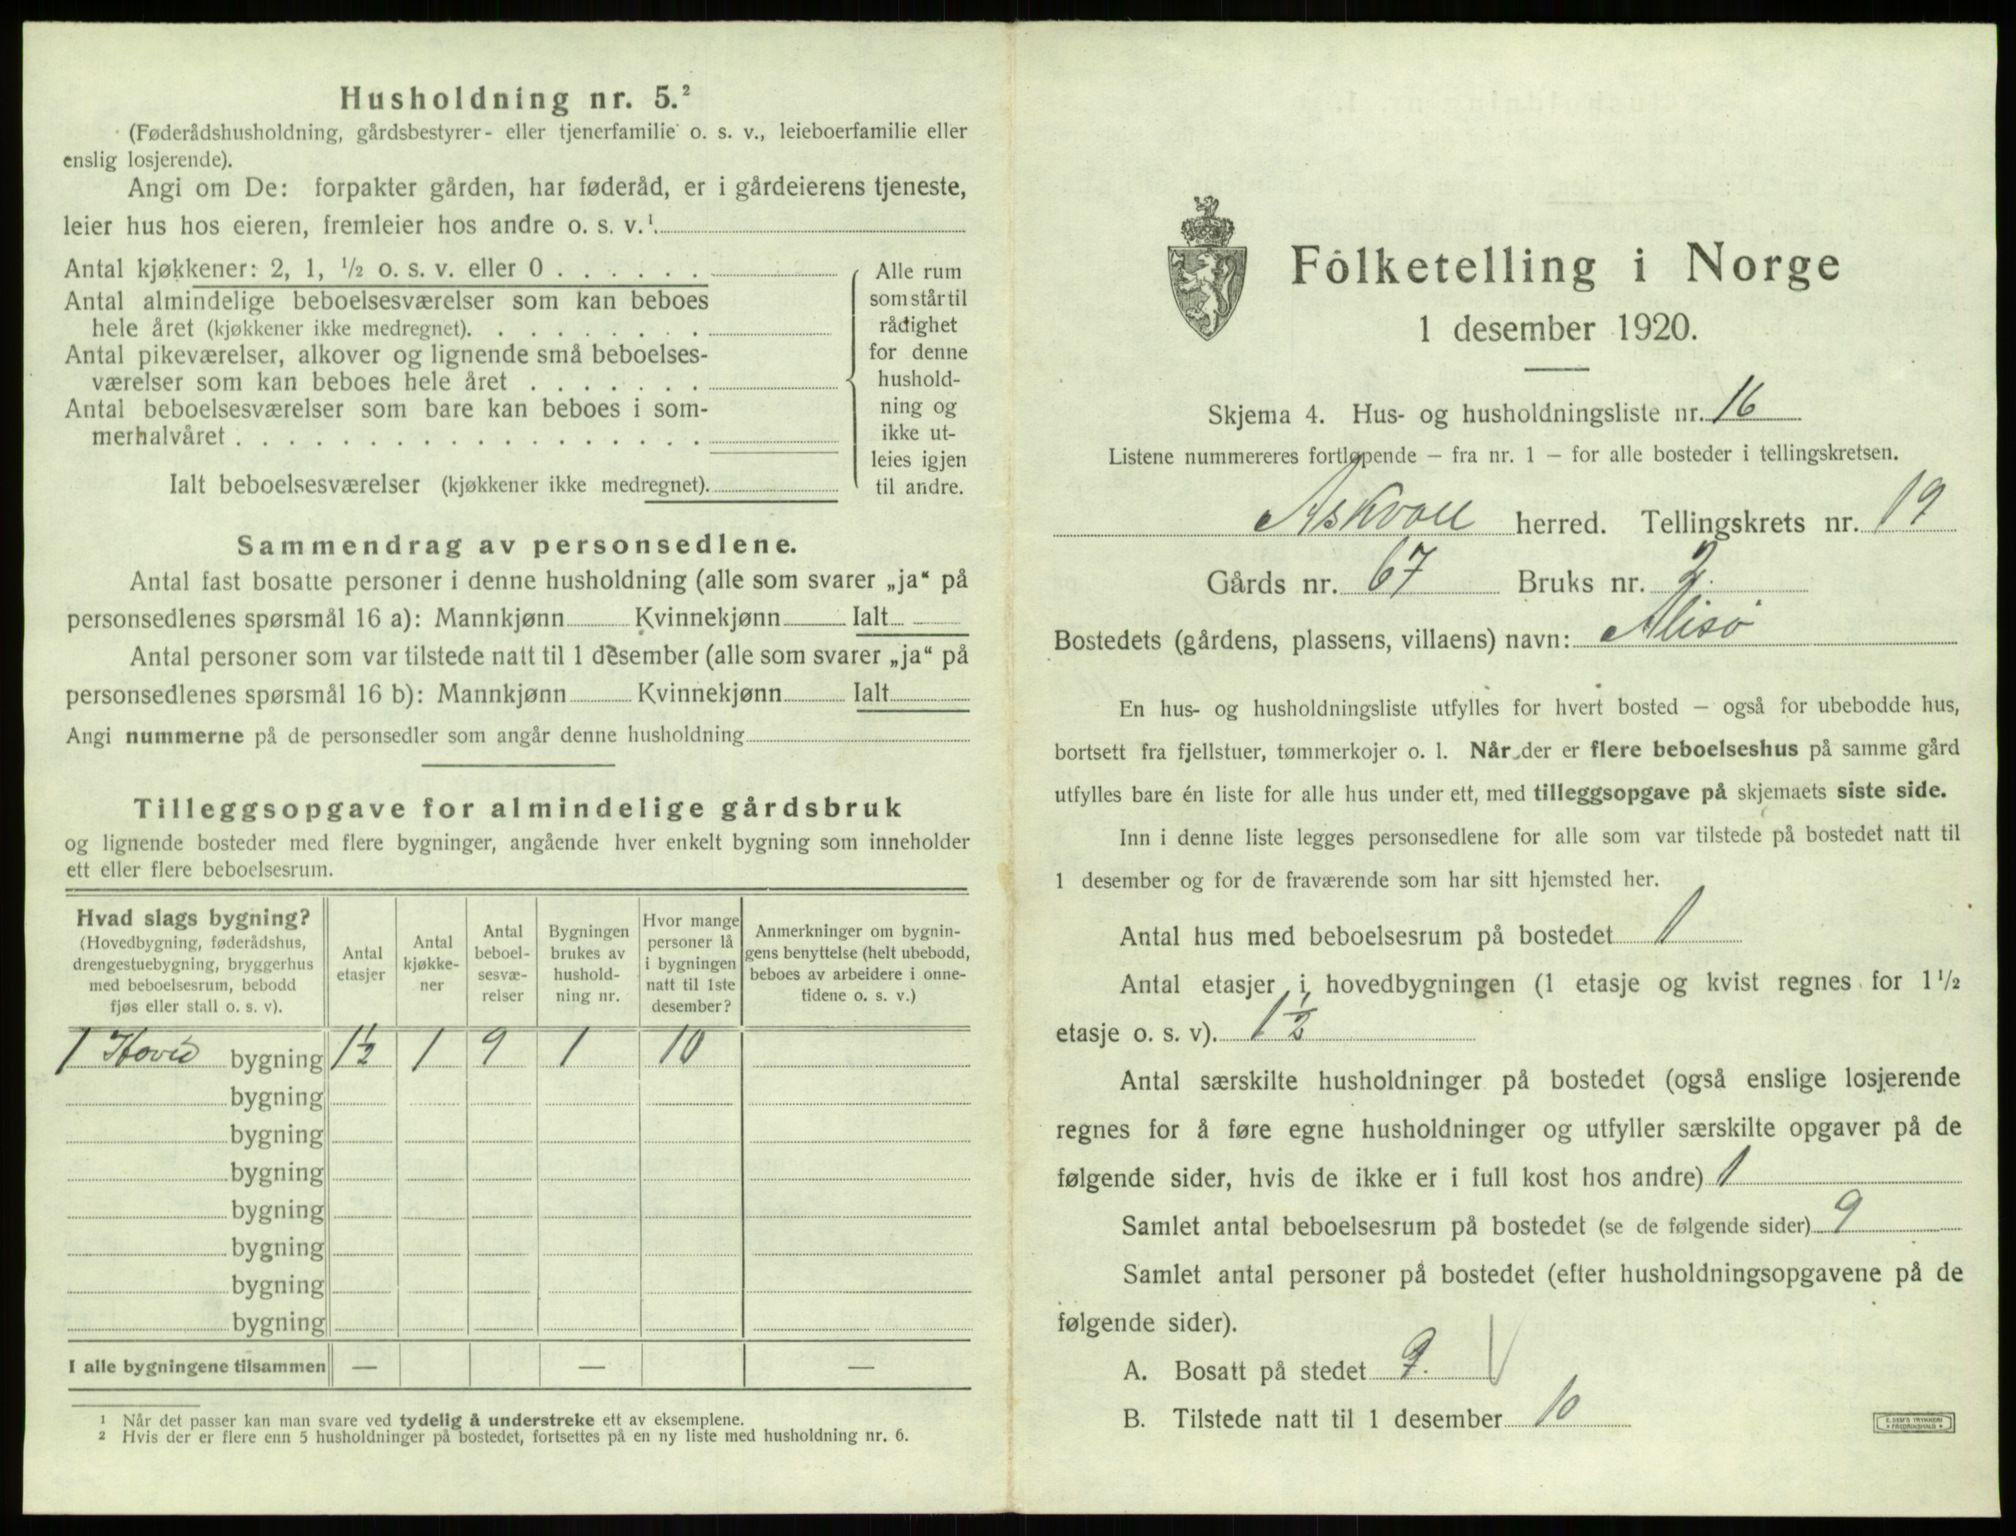 Husholdning nr. 5.²
(Føderådshusholdning, gårdsbestyrer- eller tjenerfamilie o. s. v., leieboerfamilie eller
enslig losjerende).
Angi om De: forpakter gården, har føderåd, er i gårdeierens tjeneste,
leier hus hos eieren, fremleier hos andre o. s. v.¹
Antal kjøkkener: 2, 1, ½ o. s. v. eller 0
Antal almindelige beboelsesværelser som kan beboes
hele året (kjøkkener ikke medregnet).
Antal pikeværelser, alkover og lignende små beboelses-
værelser som kan beboes hele året
Antal beboelsesværelser som bare kan beboes i som-
merhalvåret
Ialt beboelsesværelser (kjøkkener ikke medregnet).
Alle rum
som står til
rådighet
for denne
hushold-
ning og
ikke ut-
leies igjen
til andre.
Sammendrag av personsedlene.
Antal fast bosatte personer i denne husholdning (alle som svarer „ja“ på
personsedlenes spørsmål 16 a): Mannkjønn Kvinnekjønn Ialt
Antal personer som var tilstede natt til 1 desember (alle som svarer „ja“ på
personsedlenes spørsmål 16 b): Mannkjønn Kvinnekjønn Ialt
Angi nummerne på de personsedler som angår denne husholdning
Tilleggsopgave for almindelige gårdsbruk
og lignende bosteder med flere bygninger, angående hver enkelt bygning som inneholder
ett eller flere beboelsesrum.
Hvad slags bygning?
(Hovedbygning, føderådshus,
drengestuebygning, bryggerhus
med beboelsesrum, bebodd
fjøs eller stall o. s. v).
Antal
etasjer
Antal
kjøkke-
ner
Antal
beboel-
sesvæ-
relser
Bygningen
brukes av
hushold-
ning nr.
Hvor mange
personer lå
i bygningen
natt til 1ste
desember?
Anmerkninger om bygnin-
gens benyttelse (helt ubebodd,
beboes av arbeidere i onne-
tidene o. s. v.)
1 Hoved bygning 1½ 1 9 1 10
bygning
bygning
bygning
bygning
bygning
bygning
bygning
I alle bygningene tilsammen — — —
¹ Når det passer kan man svare ved tydelig å understreke ett av eksemplene.
² Hvis der er flere enn 5 husholdninger på bostedet, fortsettes på en ny liste med husholdning nr. 6.
Folketelling i Norge
1 desember 1920.
Skjema 4. Hus- og husholdningsliste nr. 16
Listene nummereres fortløpende — fra nr. 1 — for alle bosteder i tellingskretsen.
Askvoll herred. Tellingskrets nr. 19
Gårds nr. 67 Bruks nr. 2.
Bostedets (gårdens, plassens, villaens) navn: Alisø
En hus- og husholdningsliste utfylles for hvert bosted — også for ubebodde hus,
bortsett fra fjellstuer, tømmerkojer o. l. Når der er flere beboelseshus på samme gård
utfylles bare én liste for alle hus under ett, med tilleggsopgave på skjemaets siste side.
Inn i denne liste legges personsedlene for alle som var tilstede på bostedet natt til
1 desember og for de fraværende som har sitt hjemsted her.
Antal hus med beboelsesrum på bostedet 1
Antal etasjer i hovedbygningen (1 etasje og kvist regnes for 1½
etasje o. s. v). 1½
Antal særskilte husholdninger på bostedet (også enslige losjerende
regnes for å føre egne husholdninger og utfyller særskilte opgaver på de
følgende sider, hvis de ikke er i full kost hos andre) 1
Samlet antal beboelsesrum på bostedet (se de følgende sider) 9
Samlet antal personer på bostedet (efter husholdningsopgavene på de
følgende sider).
A. Bosatt på stedet 9.
B. Tilstede natt til 1 desember 10